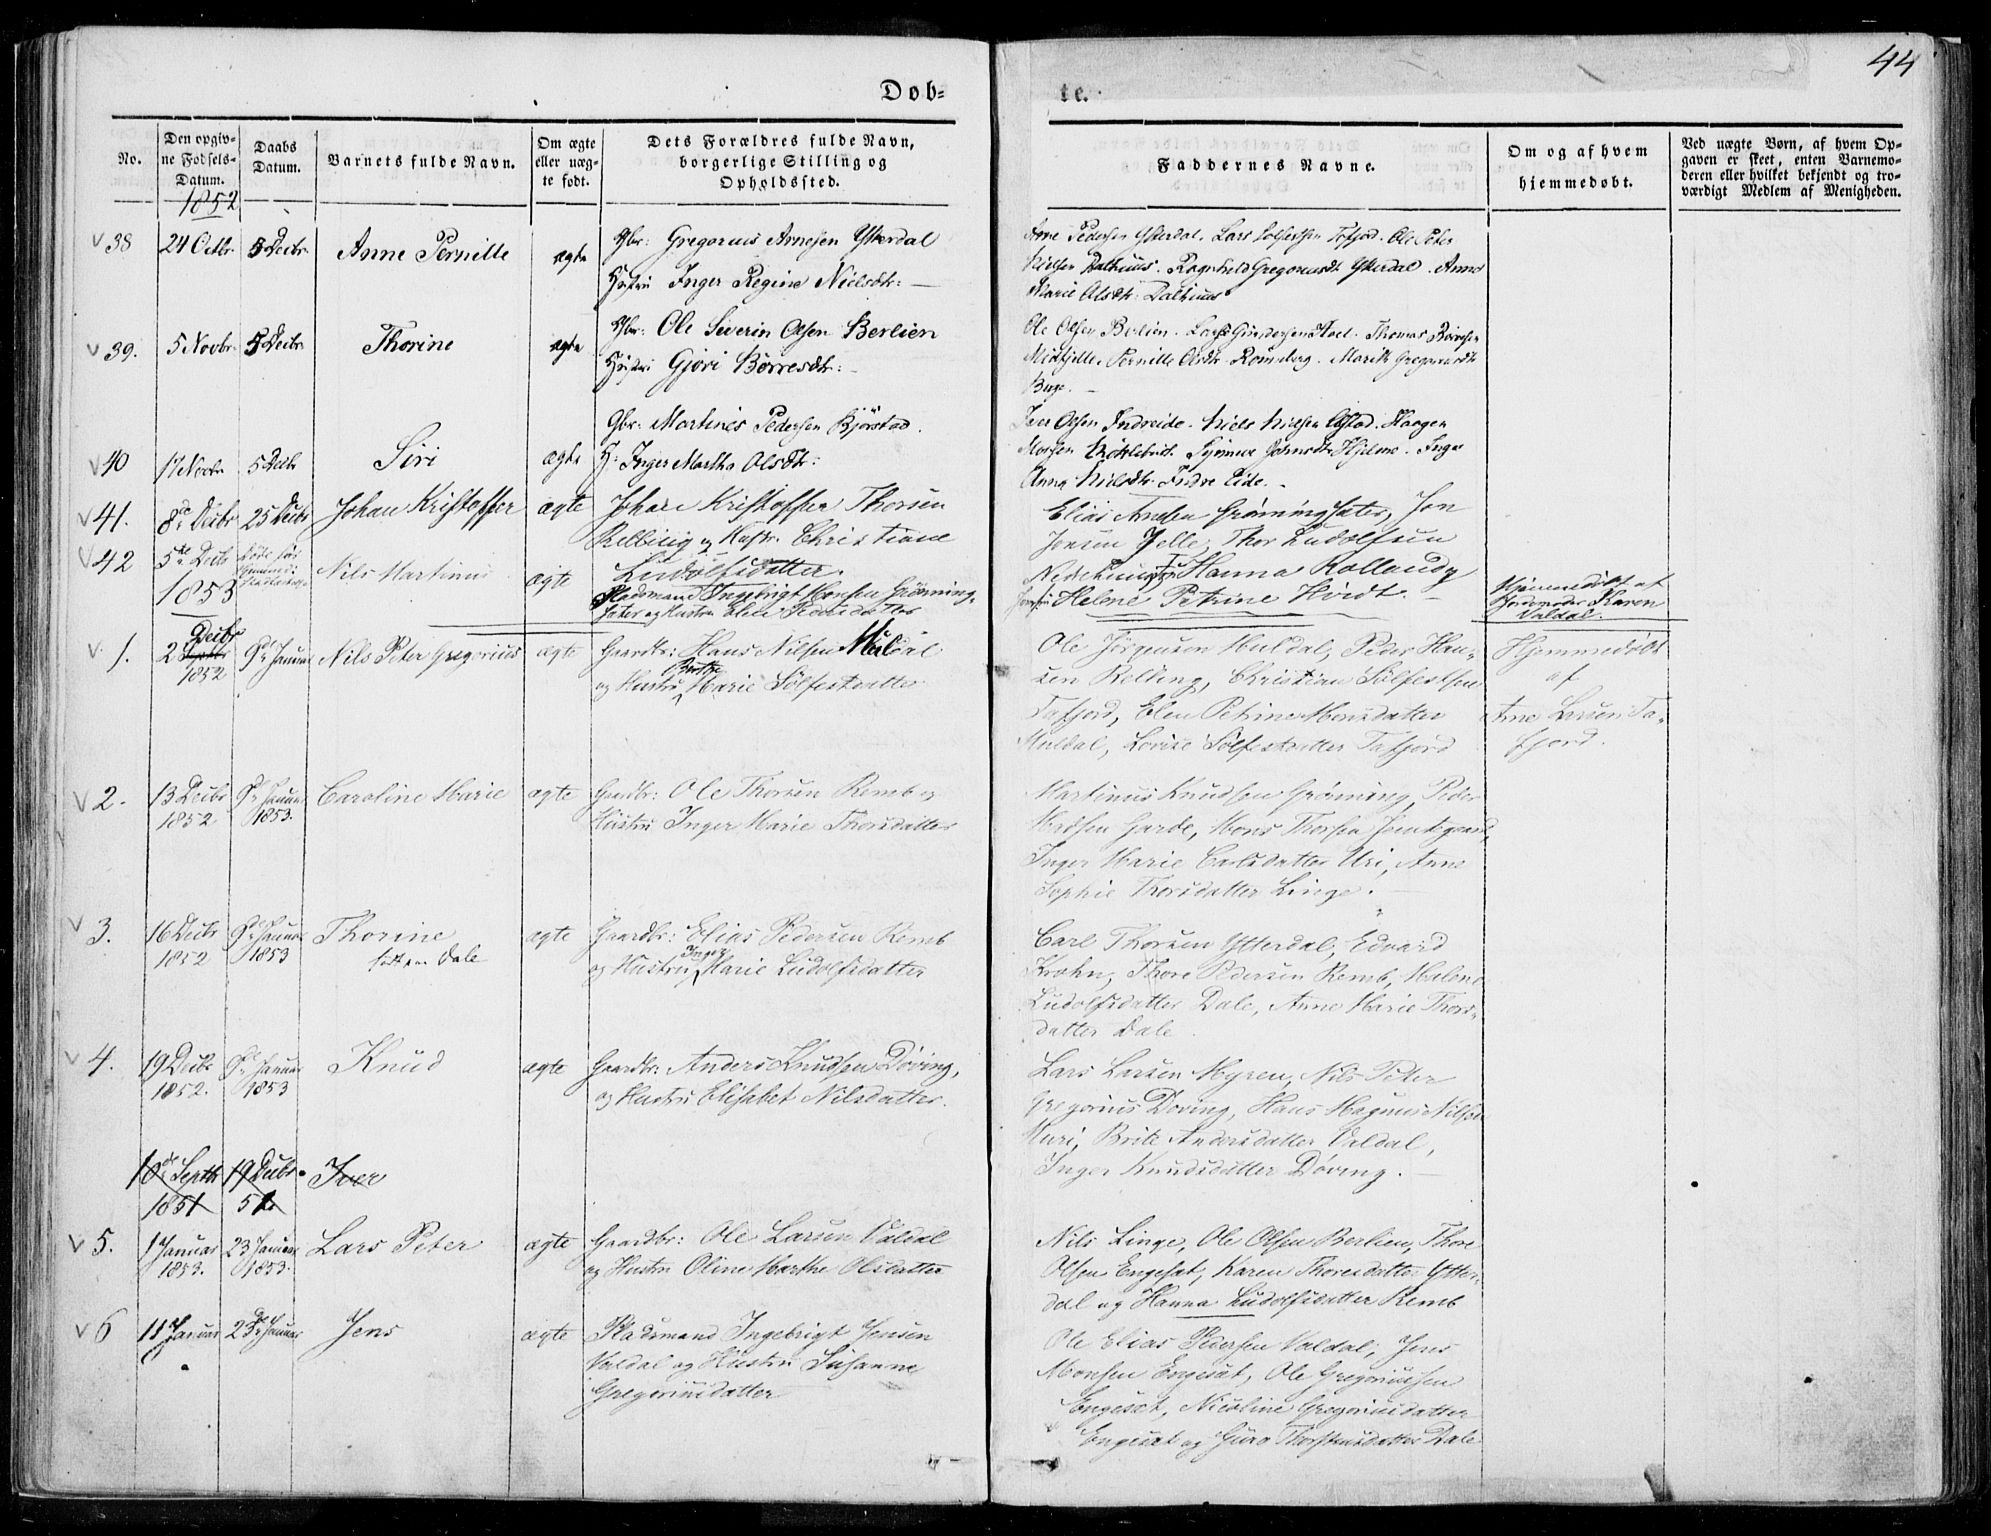 44
Døb=
te.
No.
Den opgiv=
ne Fødsels=
Datum.
Daabs
Datum.
Barnets fulde Navn.
Om ægte
eller uæg=
te født.
Dets Forældres fulde Navn,
borgerlige Stilling og
Opholdssted.
Faddernes Navne.
Om og af hvem
hjemmedøbt.
Ved uægte Børn, af hvem Op=
gaven er skeet, enten Barnemo=
deren eller hvilket bekjendt og tro=
værdigt Medlem af Menigheden.
1852
38 24 Octbr. 5 Decbr. Anne Pernille ægte Gbr: Gregorius Arnesen Ytterdal
Hustru Inger Regine Nielsdtr:
Arne Pedersen Ytterdal. Lars Tafjord. Ole Peter
Nielsen Dalhuus. Ragnhild Gregoriusdt Ytterdal. Anne
Marie Olsdtr: Dalhuus
39. 5 Novbr. 5 Decbr Thorine ægte Gbr: Ole Siverin Olsen Berlien
Hustru Gjøri Børresdtr:
Ole Olsen Berlien. Lars Thomas Børresen
Pernille Olsdtr Marith Gregoriusdtr
Berge.
40 17 Novbr 5 Decbr Siri ægte Gbr: Martines Pedersen Bjørstad.
H: Inger Martha Olsdtr:
Iver Olsen Indreide. Niels Nielsen Haagen
Johnsdtr Hjelme. Inger
Anna Nielsdtr Indre Eide.
41. 8de Decbr 25 Decbr Johan Kristoffer ægte Johan Kristoffer Thorsen
Relbling og Hustr. Christiane
Ludolfsdatter.
Elias Andsen Grønningsæter, Jon
Jonsen Jelle, Thor Ludolfsen
Hanna Rollaudg
Helene Petrine Hordt.
42 5te Decbr Døde før Nils Martinus ægte
Pladsmand Ingebrigt Monsen Grønning=
sæter og Hustru Elen Pedersdatter
Hjemmedøbt af
Jordemoder Karen
Valdal.
1853
1. 2 Decbr
1852 9de Januar Nils Peter Gregorius ægte Gaardbr: Hans Nilsen Muldal
og Hustru Berthe Marie Sølfestdatter
Ole Jørgensen Muldal, Peder Han=
sen Relling, Christian Sølfestsen
Tafjord, Elen Petrine Monsdatter
Muldal, Lovise Sølfestdatter Tafjord
Hjemmedøbt
af
Arne Larsen Ta=
fjord.
2. 13 Decbr 9de Januar Caroline Marie ægte Gaardbr: Ole Thorsen Remb og
1852 1853. Hustru Inger Marie Thorsdatter
Martinus Knudsen Grønning, Peder
Madsen Garde, Mons Thorsen
Inger Marie Carlsdatter Uri, Anne
Sophie Thorsdatter Linge.
3. 16 Decbr 9de Januar Thorine ægte Gaardbr: Elias Pedersen Remb
1852 1853 født paa Dale og Hustru Inger Marie Ludolfsdatter
Carl Thorsen Ytterdal, Edvard
Krohn, Thore Pedersen Remb, Malene
Ludolfsdatter Dale, Anne Marie Thors=
datter Dale.
4. 19 Decbr 9de Januar Knud ægte Gaardbr: Anders Knudsen Døving,
1852. 1853 og Hustru Elisabet Nilsdatter.
Lars Larsen Myren, Nils Peter
Gregorius Døving, Hans Magnus Nilsen
Muri, Brite Andersdatter Valdal,
Inger Knudsdatter Døving.
18de Septbr 19 Decbr. Iver
1851 51
5. 1 Januar 23 Januar Lars Peter ægte Gaardbr: Ole Larsen Valdal
1853. 1853. og Hustru Oline Marthe Olsdatter
Nils Linge, Ole Olsen Berlien, Thore
Olsen Engeset, Karen Thoresdatter Ytter=
dal og Hanna Ludolfsdatter Remb
6 11 Januar 23de Januar Jens ægte Pladsmand Ingebrigt Jensen
Valdal og Hustru Susanne
Gregoriusdatter
Ole Elias Pedersen Valdal, Jens
Monsen Engeset, Ole Gregoriussen
Engeset, Nicoline Gregoriusdatter
Engeset og Guro Thorstensdatter Dale